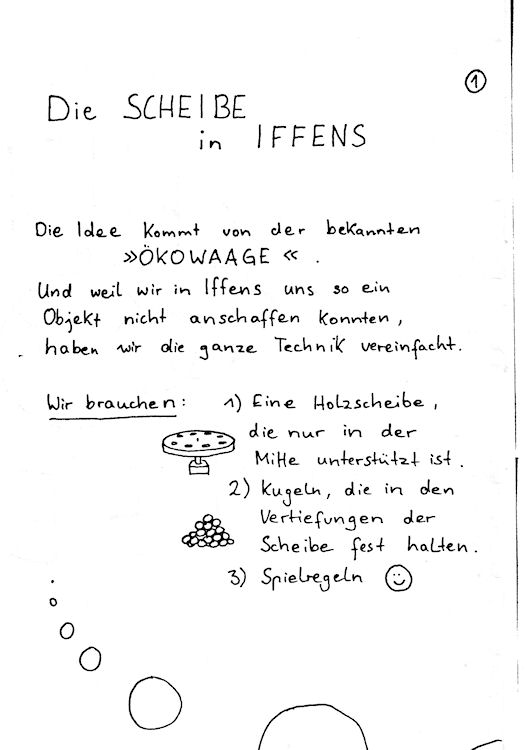 1
Die SCHEIBE
in IFFENS
Die Idee kommt von der bekannten
»ÖKOWAAGE« .
Und weil wir in Iffens uns so ein
Objekt nicht anschaffen konnten,
haben wir die ganze Technik vereinfacht.
Wir brauchen: 1) Eine Holzscheibe,
die nur in der
Mitte unterstützt ist.
2) Kugeln, die in den
Vertiefungen der
Scheibe fest halten.
3) Spielregeln